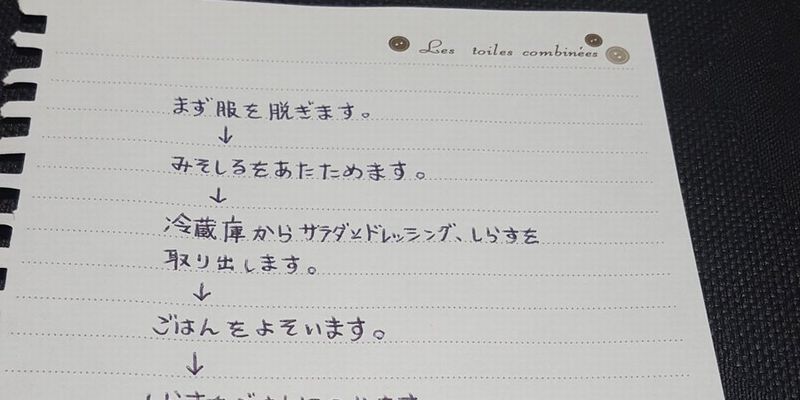 Les toiles combinées
まず服を脱ぎます。
↓
みそしるをあたためます。
↓
冷蔵庫からサラダとドレッシング、しらすを
取り出します。
↓
ごはんをよそいます。
↓